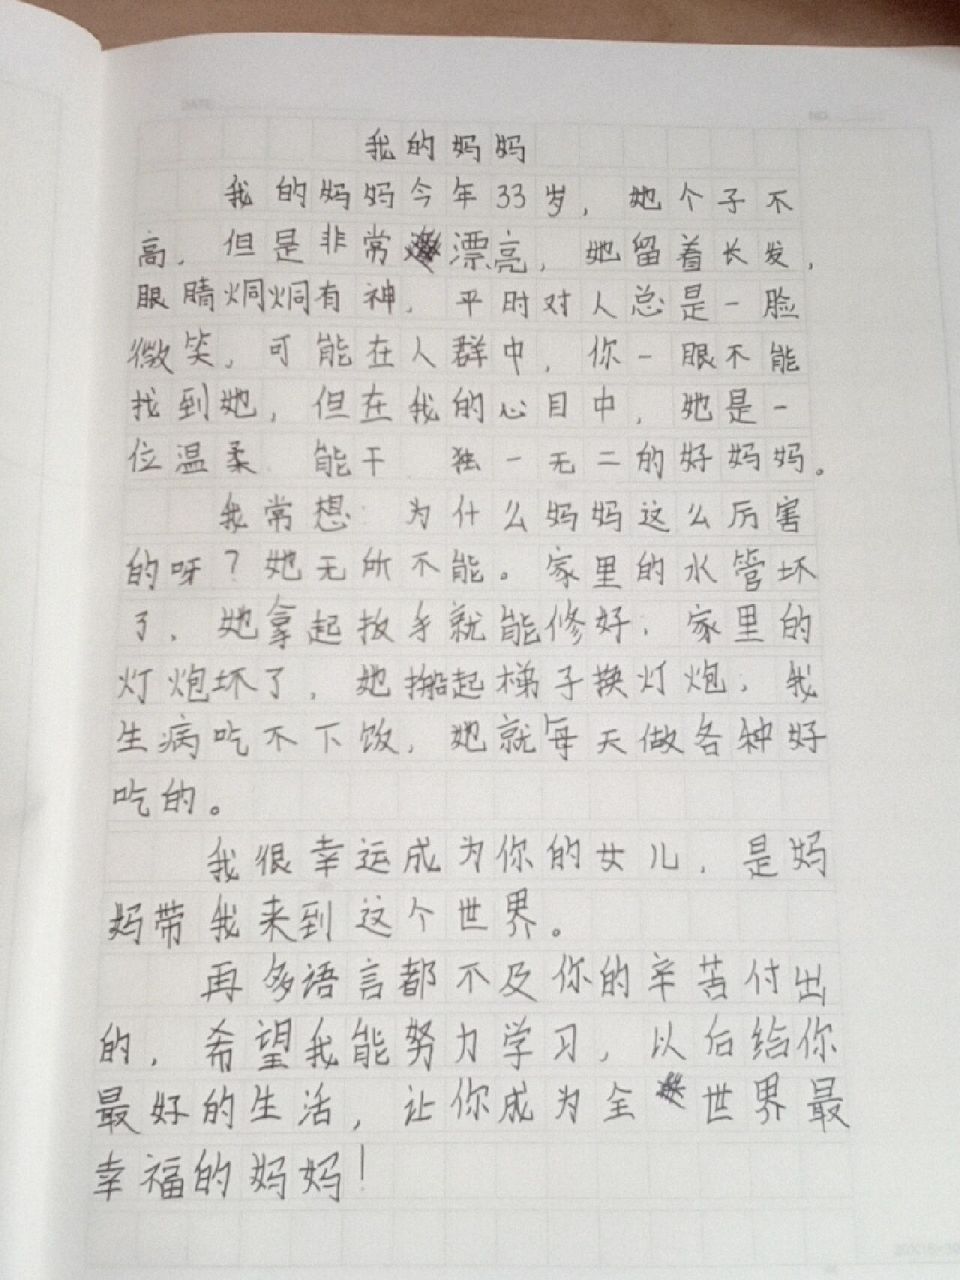 我的妈妈
我的妈妈今年33岁，她个子不
高，但是非常漂亮，她留着长发，
眼睛炯炯有神，平时对人总是一脸
微笑，可能在人群中，你一眼不能
找到她，但在我的心目中，她是一
位温柔、能干、独一无二的好妈妈。
我常想：为什么妈妈这么厉害
的呀？她无所不能。家里的水管坏
了，她拿起扳手就能修好；家里的
灯炮坏了，她搬起梯子换灯炮；我
生病吃不下饭，她就每天做各种好
吃的。
我很幸运成为你的女儿，是妈
妈带我来到这个世界。
再多语言都不及你的辛苦付出
的，希望我能努力学习，以后给你
最好的生活，让你成为全世界最
幸福的妈妈！